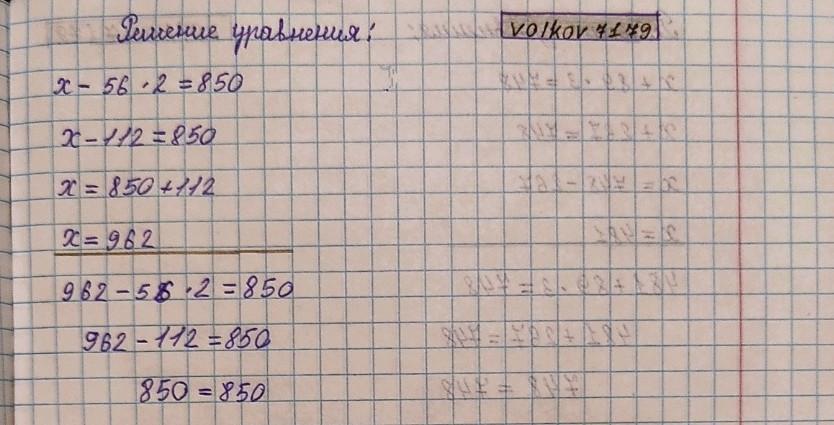 Решение уравнения: volkov7179
x - 56 · 2 = 850
x - 112 = 850
x = 850 + 112
x = 962
962 - 56 · 2 = 850
962 - 112 = 850
850 = 850